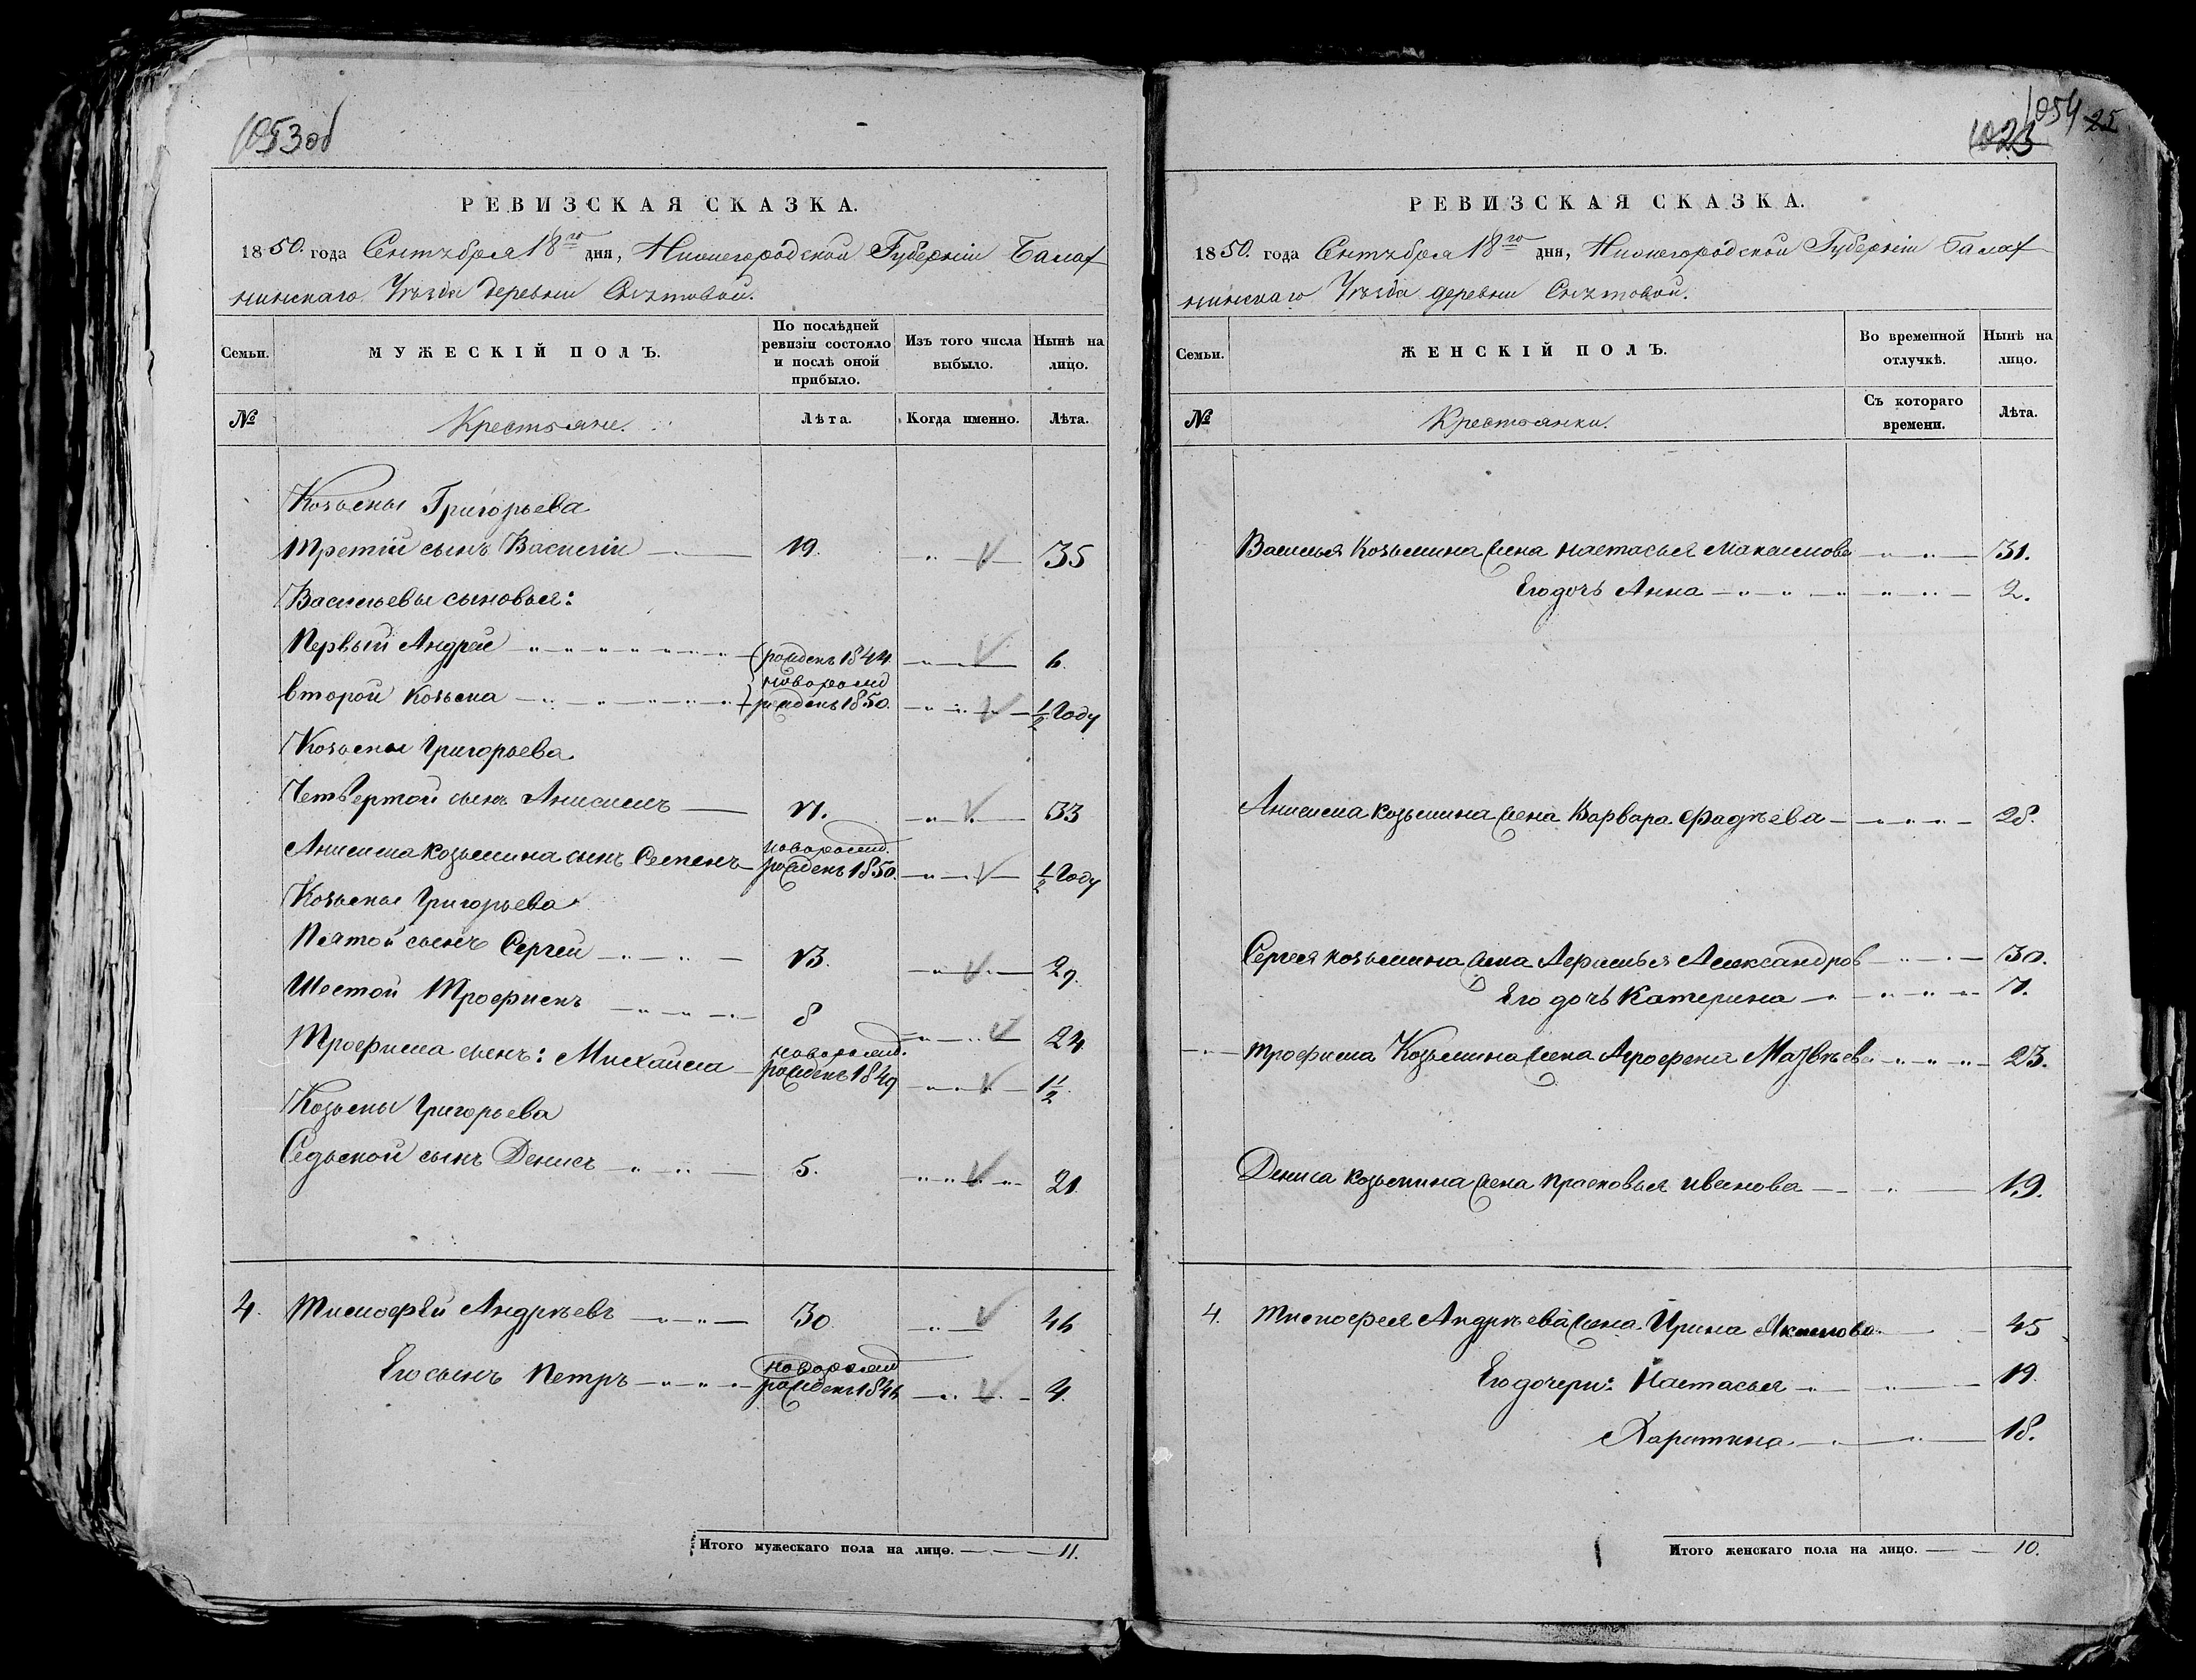 1053об
РЕВИЗСКАЯ СКАЗКА.
1850. года Сентября 18го дня, Нижегородской Губерніи Балах
нинскаго Уѣзда деревни
Семьи.
МУЖЕСКІЙ ПОЛЪ.
По послѣдней
ревизіи состояло
и послѣ оной
прибыло.
Изъ того числа
выбыло.
Нынѣ на
лицо.
№
Крестьяне.
Лѣта.
Когда именно.
Лѣта.
Козьмы Григорьева
третій сынъ Василій 19. 35
Васильевы сыновья:
Первый Андрей рожденъ 1844 6.
новорожд
второй Козьма рожденъ 1850. 1/2 Году
Козьмы Григорьева
Четвертой сынъ Анисимъ 17. 33
новорожд.
Анисима Козьмина сынъ Семенъ рожденъ 1850. 1/2 Году
Козьмы Григорьева
Пятой сынъ Сергей 13. 29.
Шестой Трофимъ 8 24
новорожд.
Трофима сынъ: Михайла рожденъ 1849 1 1/2
Козьмы Григорьева
Седьмой сынъ Денисъ 5. 21.
4. Тимофей Андрѣевъ 30 46
новорожд
Его сынъ Петръ рожденъ 1846 4.
Итого мужескаго пола на лицо. 11.
1054 25
1023
РЕВИЗСКАЯ СКАЗКА.
1850. года Сентября 18го дня, Нижегородской Губерніи Балах
нинскаго Уѣзда деревни
Семьи.
ЖЕНСКІЙ ПОЛЪ.
Во временной
отлучкѣ.
Нынѣ на
лицо.
№
Крестьянки.
Съ котораго
времени.
Лѣта.
Василья Козьмина жена Настасья Максимова 31.
Его дочь Анна 2.
Анисима Козьмина жена Варвара Фадѣева 28.
Сергея Козьмина жена Афимья Александров 30.
Его дочь Катерина 7.
Трофима Козьмина жена Агрофена Матвѣева 23.
Дениса Козьмина жена Прасковья Иванова 19.
4. Тимофея Андрѣева жена Ирина Акимова 45
Его дочери: Настасья 19.
Харитина 18.
Итого женскаго пола на лицо. 10.